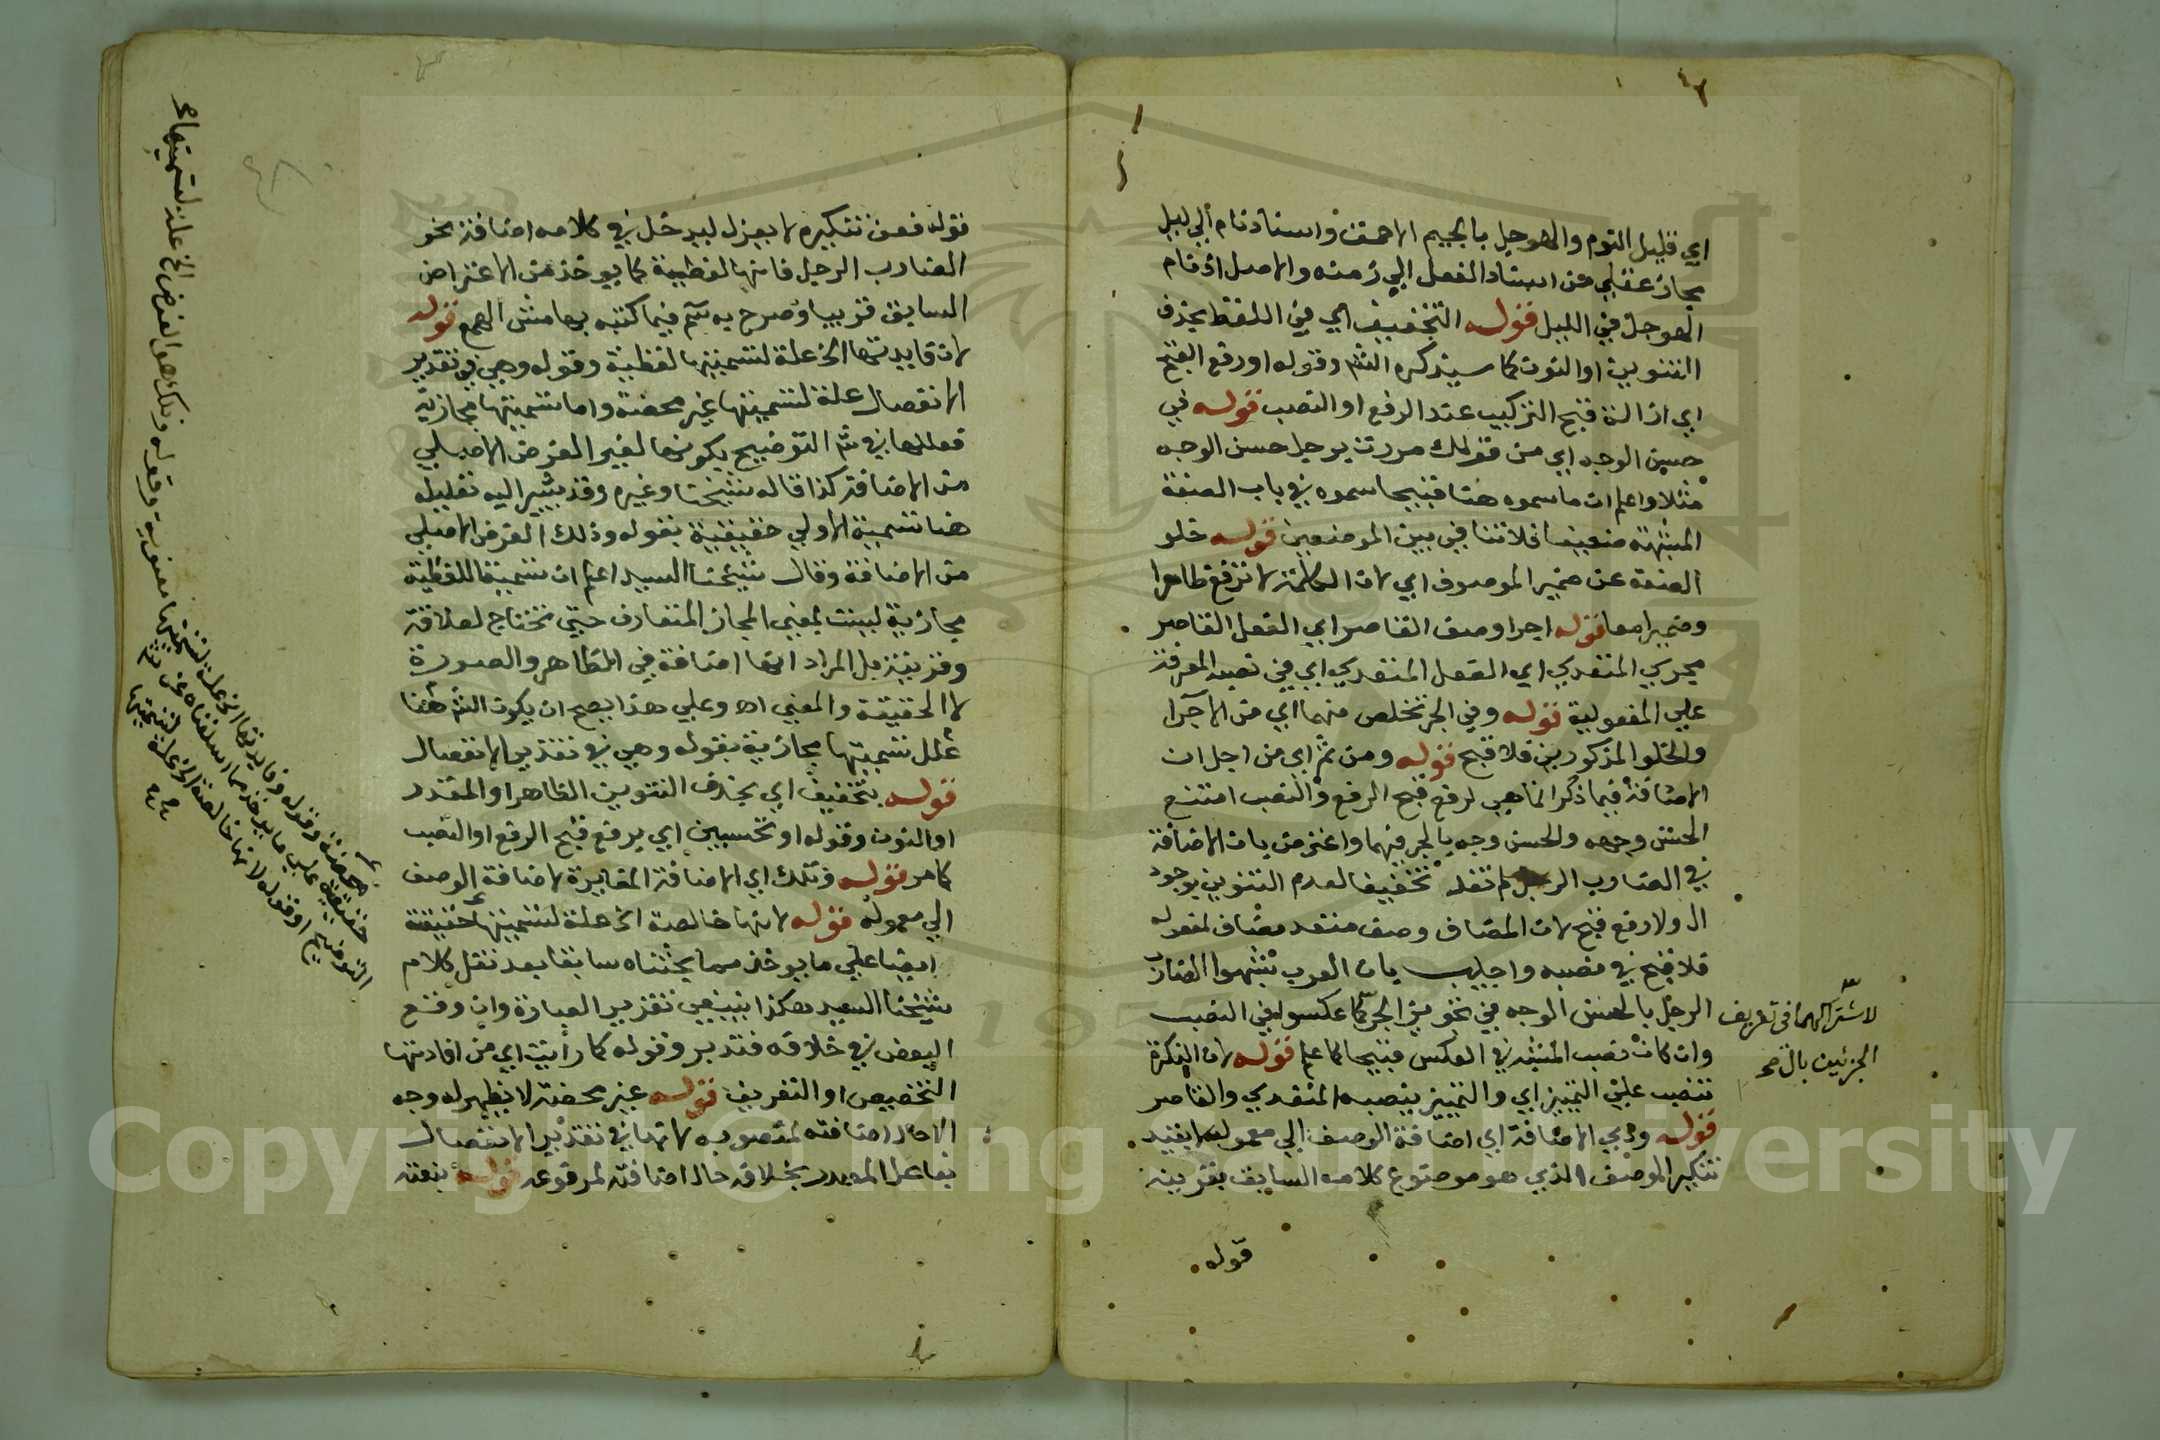 اي قليل النوم والهوجل بالجيم الاحمق واسناد نام الي ليل
مجاز عقلي من اسناد الفعل الي زمنه والاصل اذ نام
الهوجل في الليل قوله التخفيف اي في اللفظ بحذف
التنوين او النون كما سيذكره الش وقوله او رفع القبح
اي ازالة قبح التركيب عند الرفع او النصب قوله في
حسن الوجه اي من قولك مررت برجل حسن الوجه
مثلا واعلم ان ما سموه هنا قبيحا سموه في باب الصفة
المشبهة ضعيفا فلا تنافي بين الموضعين قوله خلو
الصفة عن ضمير الموصوف اي لان الصفة لا ترفع ظاهرا
وضميرا معا قوله اجرا وصف القاصر اي الفعل القاصر
مجري المتعدي اي الفعل المتعدي اي في نصبه المعرفة
علي المفعولية قوله وفي الجر تخلص منهما اي من الاجرا
والخلو المذكورين فلا قبح قوله ومن ثم اي من اجل ان
الاضافة فيما ذكر انما هي لرفع قبح الرفع والنصب امتنع
الحسن وجهه والحسن وجه بالجر فيهما واعترض بان الاضافة
في الضارب الرجل لم تفد تخفيفا لعدم التنوين بوجود
ال ولا رفع قبح لان المضاف وصف متعد مضاف لمفعوله
فلا قبح في نصبه واجيب بان العرب شبهوا الضارب
الرجل بالحسن الوجه في نحويز الجر كما عكسوا في النصب
وان كان نصب المشبه في العكس قبيحا كما علم قوله لان النكرة
تنصب علي التمييز اي والتمييز ينصبه المتعدي والقاصر
قوله وذي الاضافة اي اضافة الوصف الي معموله لا يفيد
تنكير الموصف الذي هو موضوع كلامه السابق بقرينة
قوله
لاشتراكهما في تعريف
الجزئين بال صح
قوله فعن تنكيره لا يعزل ليدخل في كلامه اضافة نحو
الضارب الرجل فانها لفظية كما يوخذ من الاعتراض
السابق قريبا وصرح به سم فيما كتبه بهامش الهمع قوله
لان فايدتها الخ علة لتسميتها لفظية وقوله وهي في تقدير
الانفصال علة لتسميتها غير محضة واما تسميتها مجازية
فعللها في ش التوضيح بكونها لغير الغرض الاصلي
من الاضافة كذا قاله شيخنا وغيره وقد يشير اليه تعليله
هنا تسمية الاولي حقيقية بقوله وذلك الغرض الاصلي
من الاضافة وقال شيخنا السيد اعلم ان تسمية اللفظية
مجازية ليست بمعني المجاز المتعارف حتي تحتاج لعلاقة
وقرينة بل المراد انها اضافة في الظاهر والصورة
لا الحقيقة والمعني اه وعلي هذا يصح ان يكون الش هنا
علل تسميتها مجازية بقوله وهي في تقدير الانفصال
قوله بتخفيف اي بحذف التنوين الظاهر او المقدر
او النون وقوله او تحسين اي برفع قبح الرفع او النصب
كما مر قوله وتلك اي الاضافة المغايرة لاضافة الوصف
الي معموله قوله لانها خالصة الخ علة لتسميتها حقيقة
ايضا علي ما يوخذ مما بحثناه سابقا بعد نقل كلام
شيخنا السيد هكذا ينبغي تقرير العبارة وان وقع
البعض في خلافه فتدبر وقوله كما رأيت اي من افادتها
التخصيص او التعريف قوله غير محضة لا يظهر له وجه
الا حال اضافته لمنصوبه لانها في تقدير الانفصال
بفاعل المصدر بخلاف حال اضافته لمرفوعه قوله بنعته
محضة وقوله وفايدتها الخ علة لتسميتها معنوية وقوله وذلك هو الغرض الخ علة لتسميتها
حقيقية علي ما يوخذ مما اسلفناه عن ش
التوضيح او قوله لانها خالصة الخ علة لتسميتها